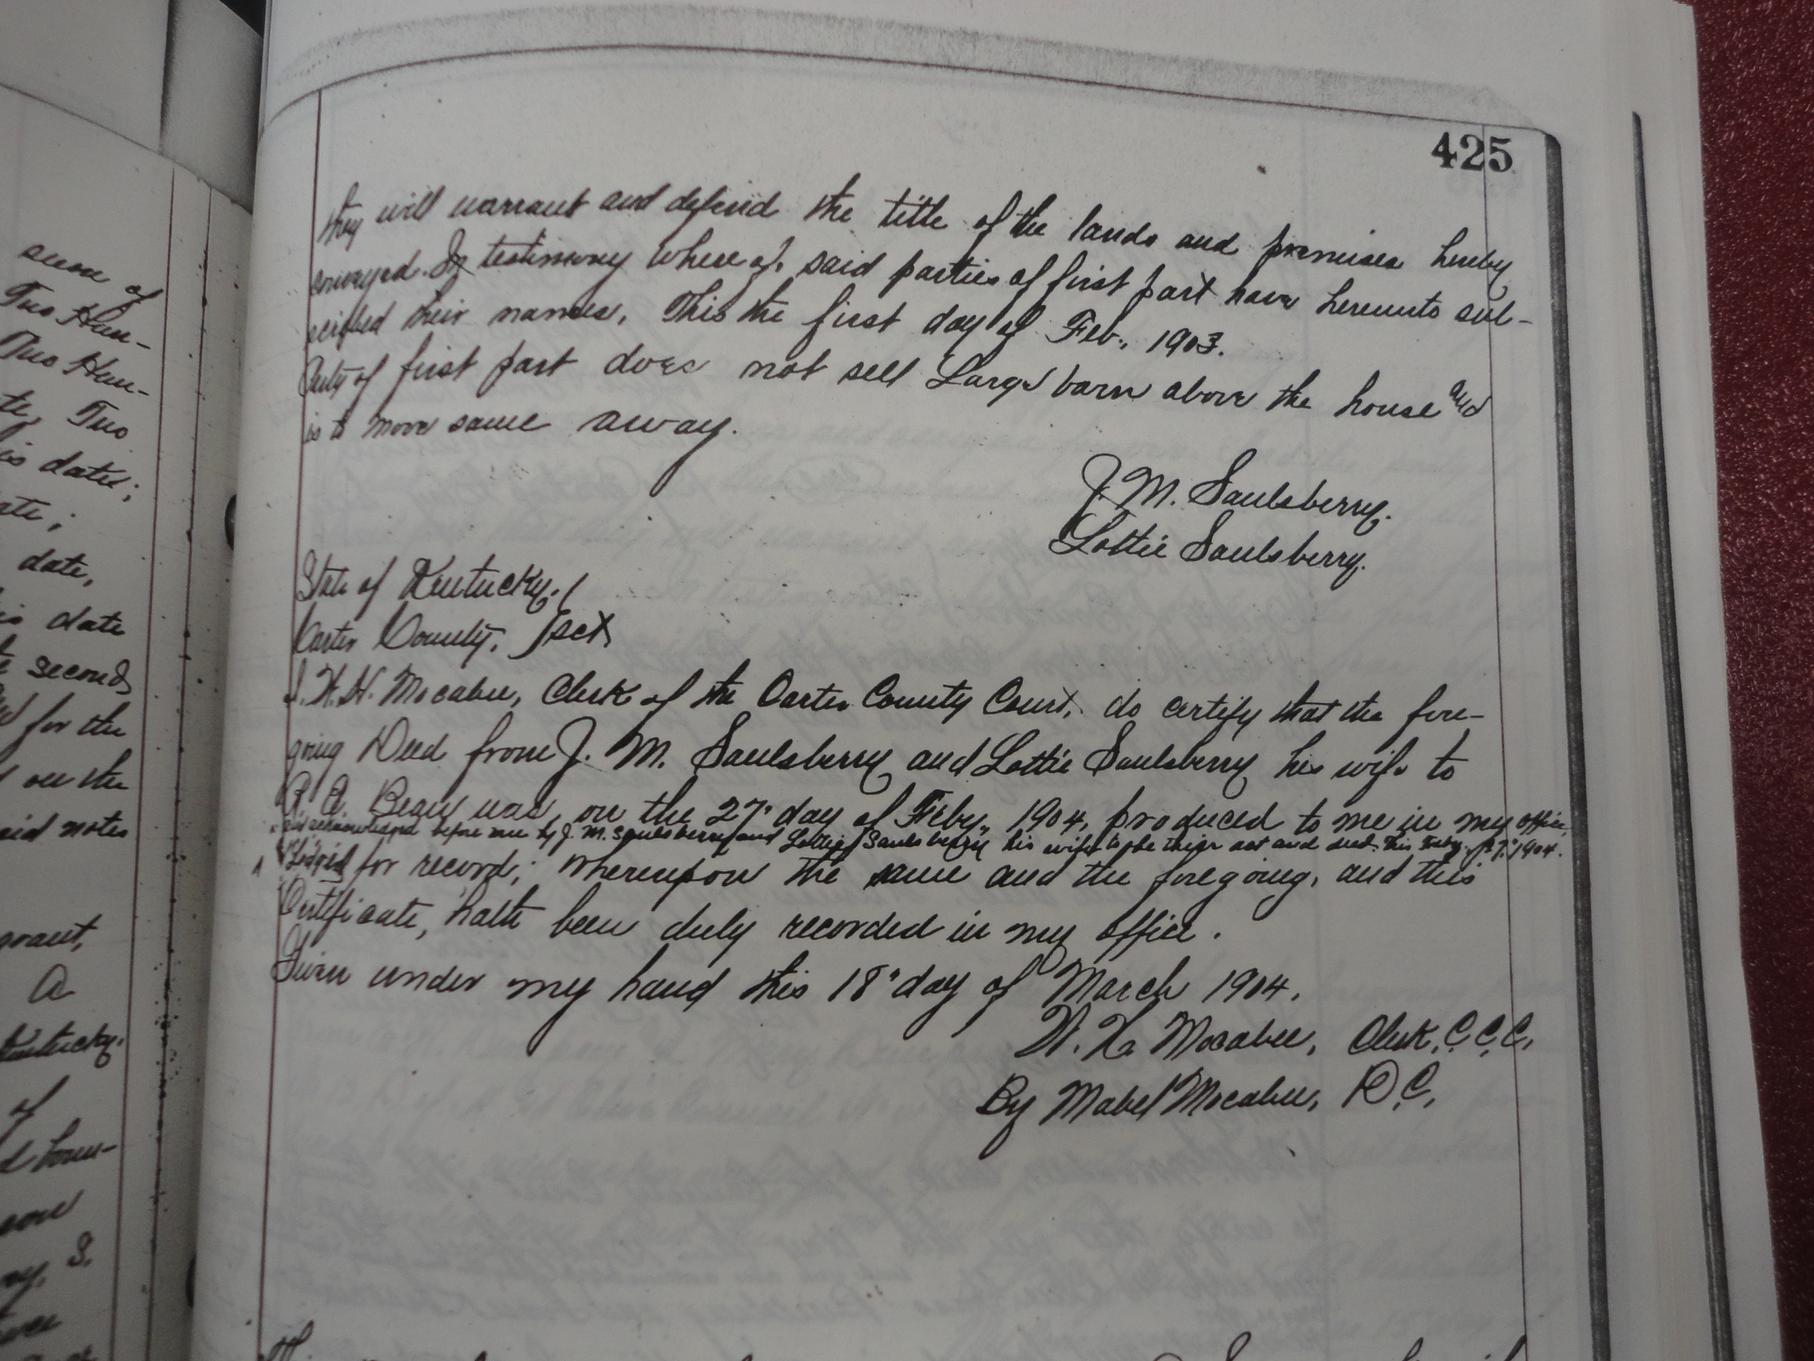 425
they will warrant and defend the title of the lands and premises hereby
conveyed. In testimony whereof, said parties of first part have hereunto sub-
scribed their names, This the first day of Feb., 1903.
Party of first part does not sell Large barn above the house and
is to move same away.
J. M. Saulsberry.
Lottie Saulsberry.
State of Kentucky.
Carter County, sct
I. H. H. Mocabee, Clerk of the Carter County Court, do certify that the fore-
going Deed from J. M. Saulsberry and Lottie Saulsberry his wife to
Bear was, on the 27" day of Feby., 1904, produced to me in my office
acknowledged before me by J. M. Saulsberry and Lottie Saulsberry his wife to be their act and deed. This Feby. 27" 1904.
Lodged for record; whereupon the same and the foregoing, and this
Certificate, hath been duly recorded in my office.
Given under my hand this 18" day of March 1904.
Mocabee, Clerk, C. C. C.
By Mabel Mocabee, D. C.
sum of
Two Hun-
Two Hun-
Two
date;
date,
date
second
for the
on the
said notes
grant,
A
Kentucky.
of